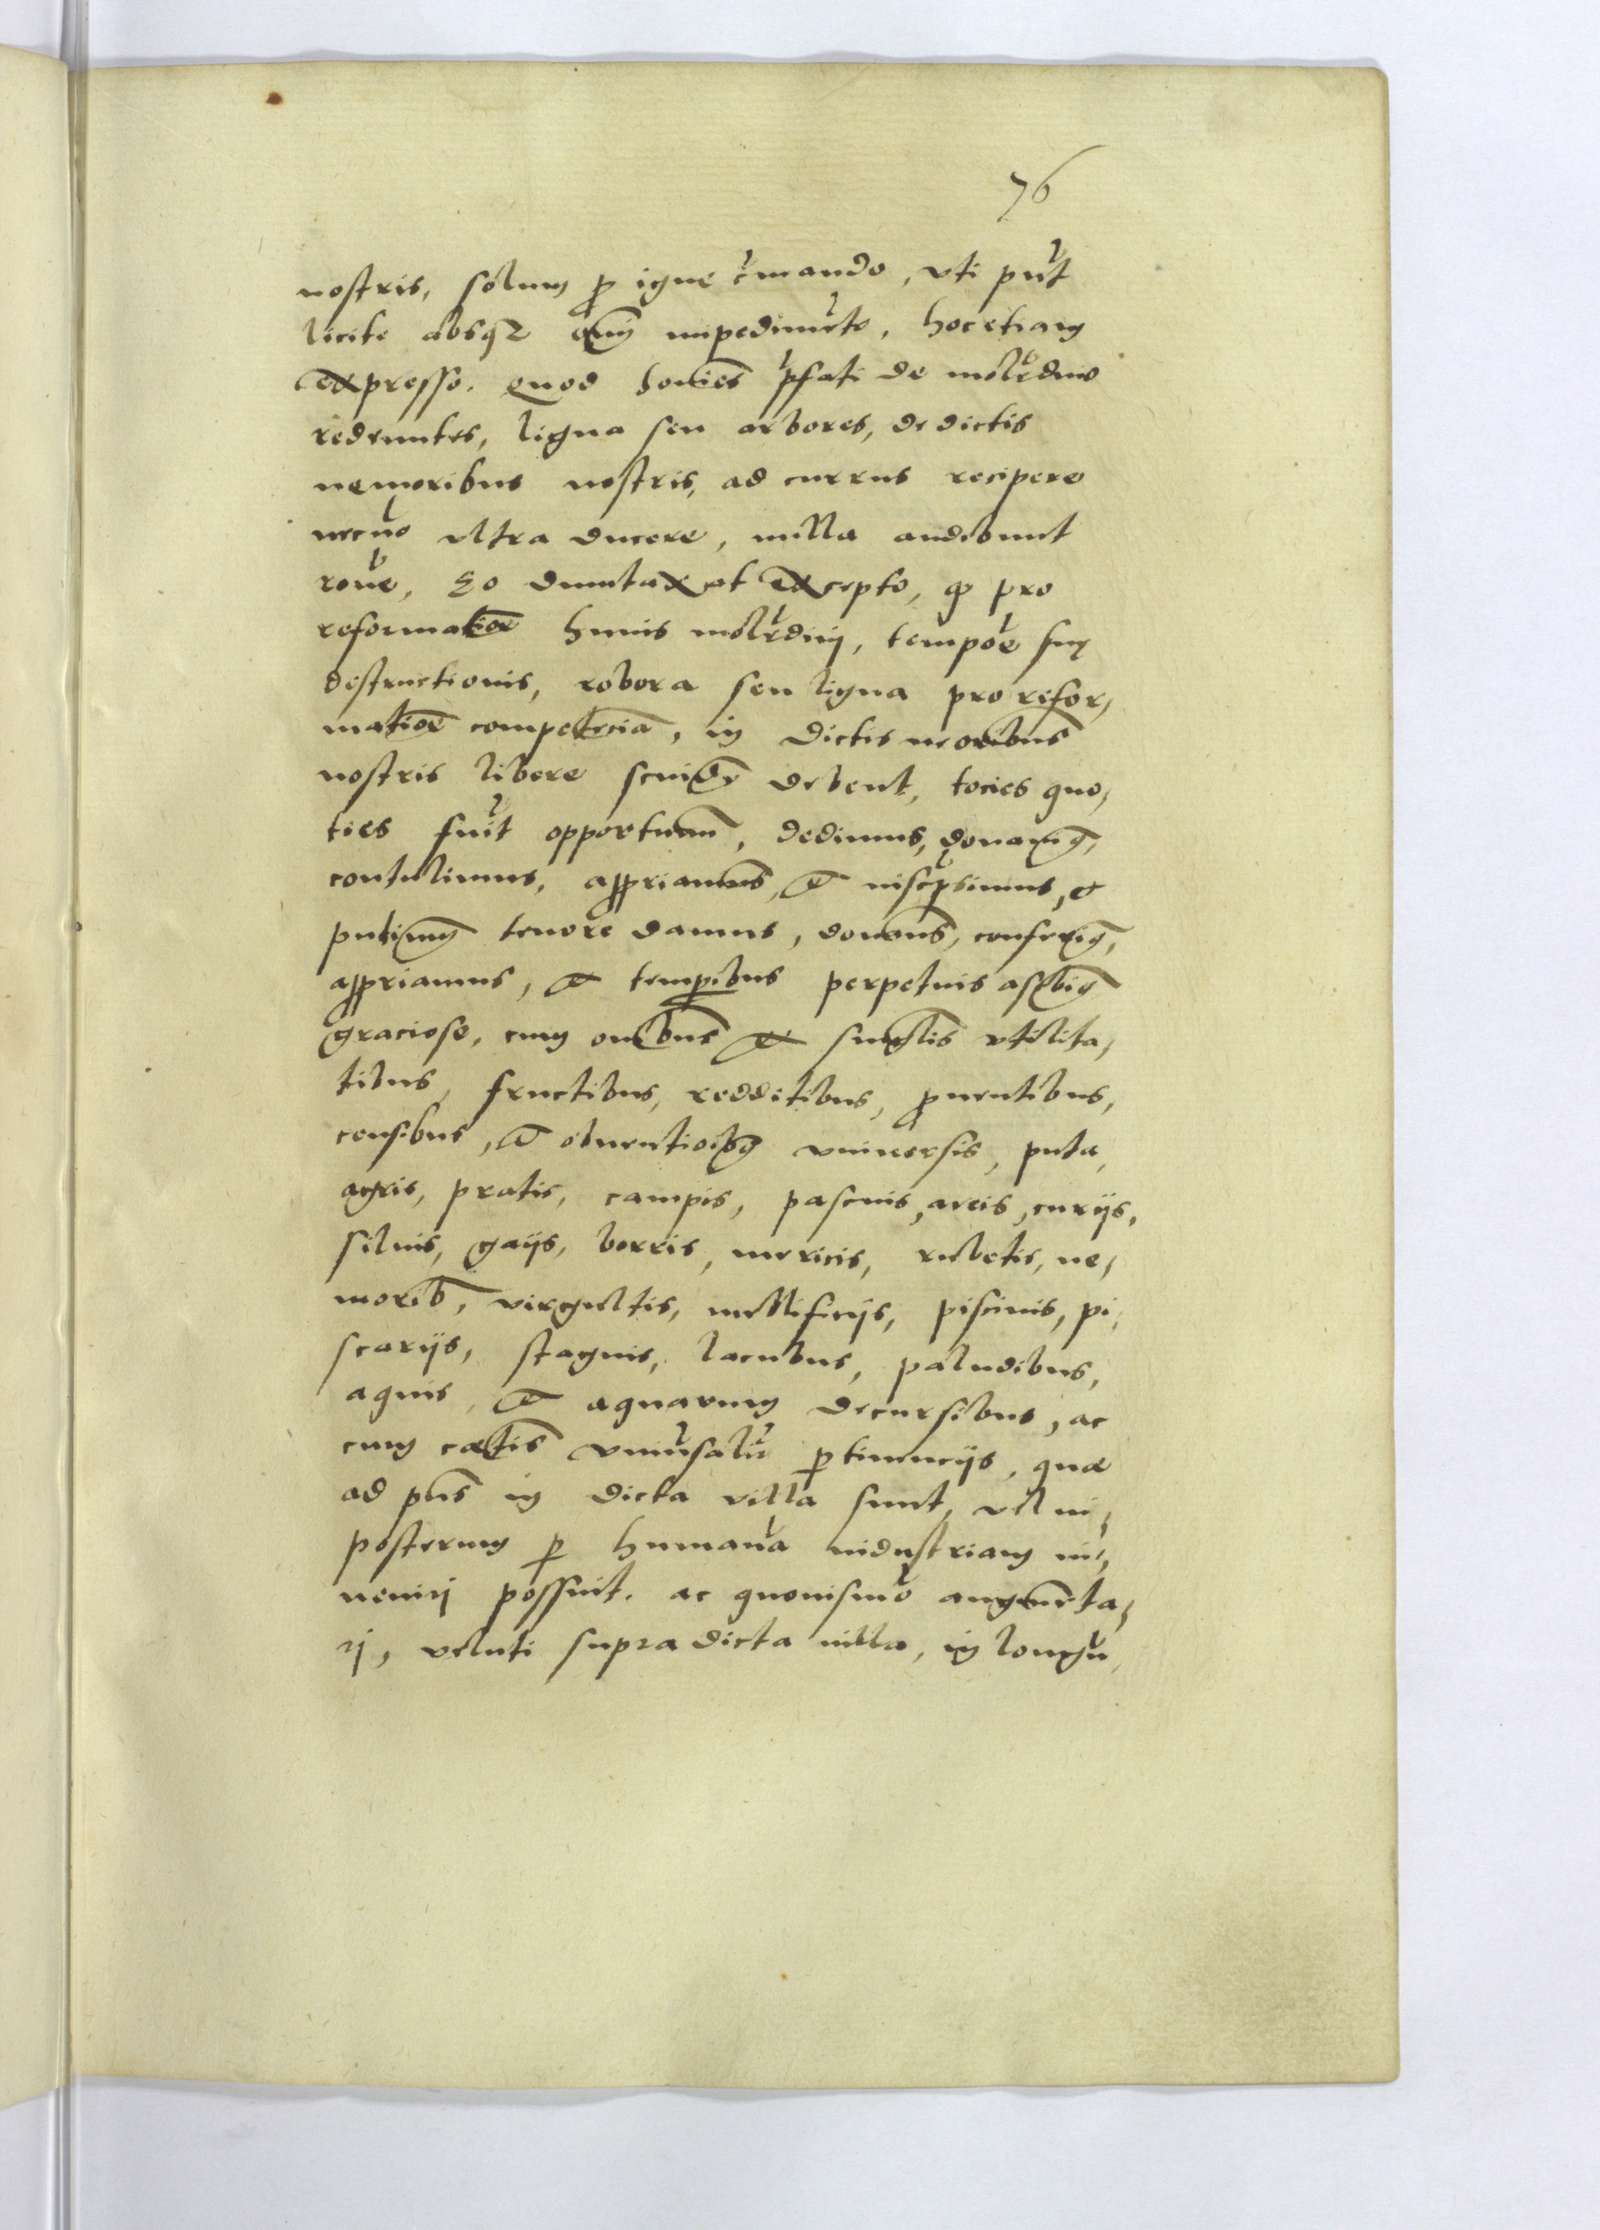 76
nostris, solum p igne cmando, vti put
licite absq impedimeto, hoc etiam
expresso. Quod homies pfati de molēdino
redeuntes, ligna seu arbores, de dictis
nemoribus nostris, ad currus recipere
necno vltra ducere, nulla audebunt
rone, Eo duntaxat excepto, q pro
reformatioe huius molēdinj, tempoe suę
destructionis, robora seu ligna pro refor,
matioe competecia, in dictis neoribus
nostris libere scindē debent, tocies quo,
ties fuit opportunū, dedimus, donauimq,
contulimus, appriauimus, et inscpsimus, et
pntium tenore damus, donamus, conferimq,
appriamus, et tempibus perpetuis ascbimq
graciose, cum omibus et singlis vtilita,
tibus, fructibus, redditibus, puentibus,
censibus, et obuentioibq vniuersis, puta,
agris, pratis, campis, pascuis, areis, curijs,
siluis, gaijs, borris, mericis, rubetis, ne,
morib, virgultis, mellificijs, piscinis, pi,
scarijs, stagnis, lacubus, paludibus,
aquis, et aquarum decursibus, ac
cum cætis vniusalib ptinencijs, quæ
ad pns in dicta villa sunt, vel in,
posterum p humana industriam in,
uenirj possint. ac quouismo augmēta,
rj, veluti supra dicta villa, in longū,